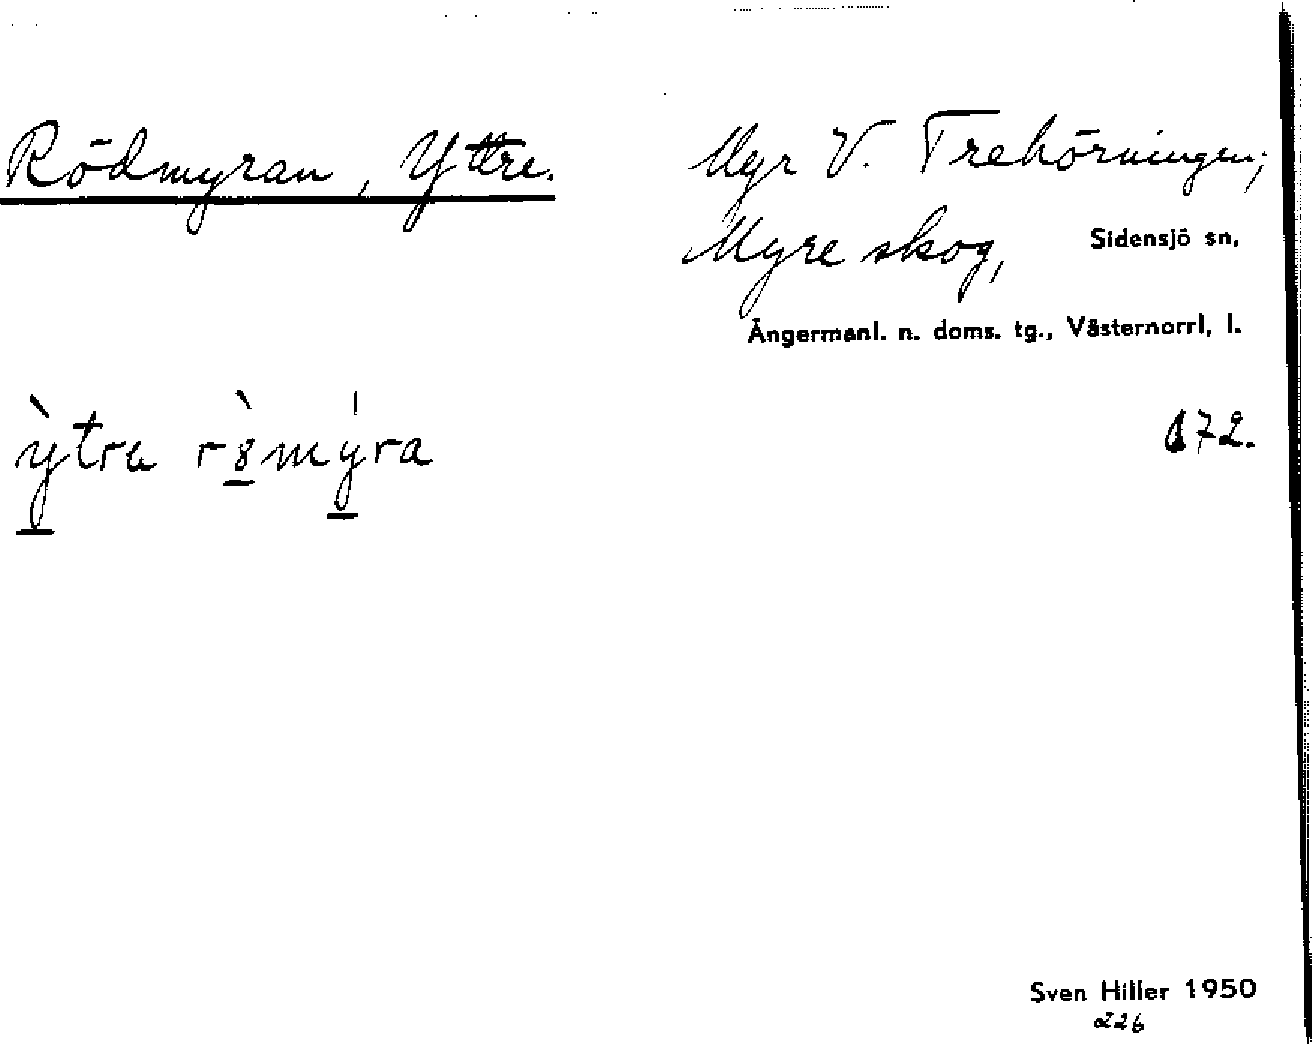 Rödmyran, Yttre.
Myr V. Trehörningen;
Myre skog, Sidensjö sn,
Ångermanl. n. doms. tg., Västernorrl. l.
ỳtra r8̀mýra
172.
Sven Hiller 1950
226